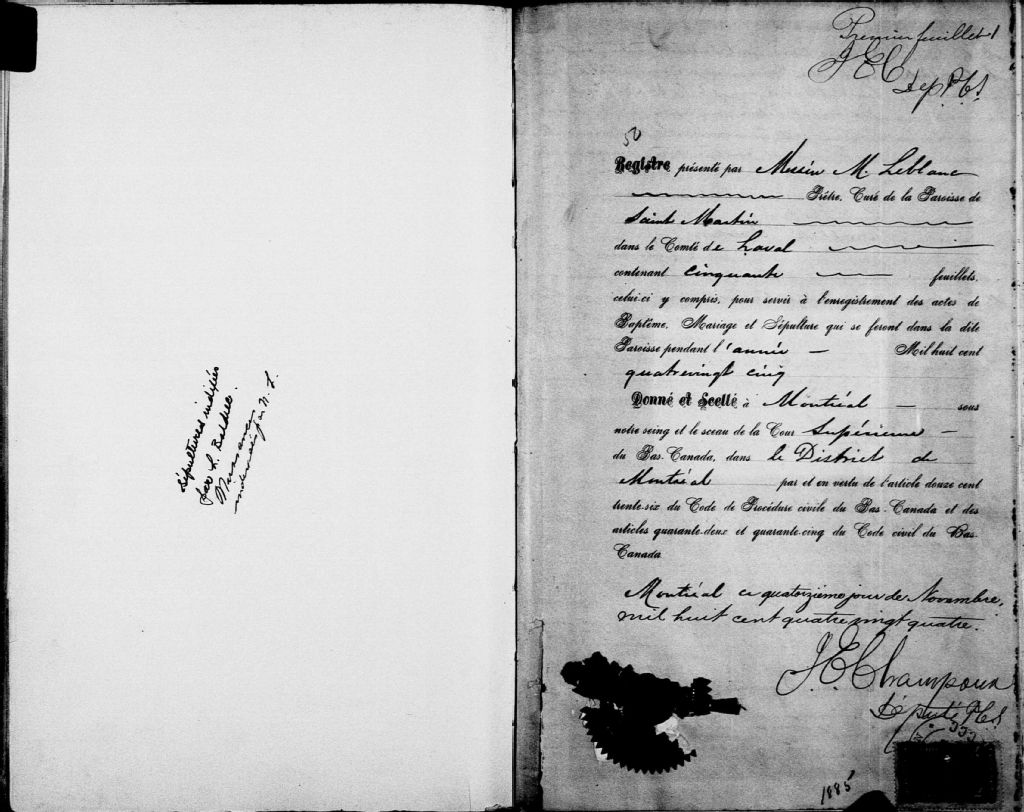 Sépultures indexées
par L. Bélslec.
Naissances
par N. L.
Premier feuillet 1
J E C
Dep. P.C.S.
50
Registre présenté par Messire M. Leblanc
Prêtre, Curé de la Paroisse de
Saint Martin
dans le Comté de Laval
contenant cinquante feuillets,
celui-ci y compris, pour servir à l'enregistrement des actes de
Baptême, Mariage et Sépulture qui se feront dans la dite
Paroisse pendant l'année — Mil huit cent
quatrevingt cinq
Donné et Scellé à Montréal — sous
notre seing et le sceau de la Cour Supérieure —
du Bas-Canada, dans le District de
Montréal par et en vertu de l'article douze cent
trente-six du Code de Procédure civile du Bas-Canada et des
articles quarante-deux et quarante-cinq du Code civil du Bas-
Canada
Montréal ce quatorzième jour de Novembre,
mil huit cent quatre vingt quatre.
J. E. Champoux
Député P.C.S.
1885